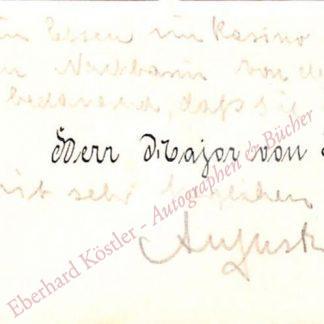 Essen im Kasino
Nachbarin von
bedauernd, daß sie
Herr Major von
mit sehr herzlichen
August
Eberhard Köstler - Autographen & Bücher